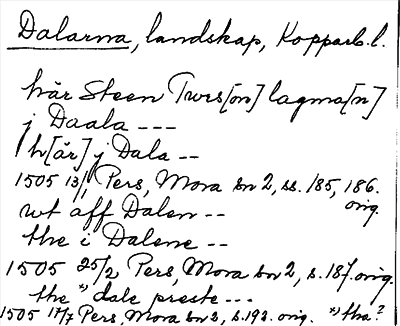 Dalarna, landskap, Kopparb. l.
här Steen Twrs[on] lagma[n]
j Daala ---
h[är] j Dala --
1505 13/1 Pers, Mora sn 2, ss. 185, 186. orig.
wt aff Dalen --
the i Dalene --
1505 25/2 Pers, Mora sn 2, s. 187. orig.
the *) dale preste ---
1505 17/7 Pers, Mora sn 2, s. 192. orig. *) tha?